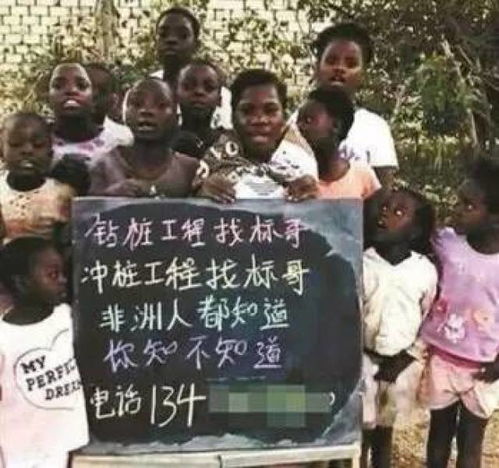 钻桩工程找标哥
冲桩工程找标哥
非洲人都知道
你知不知道
电话134
MY
PERFECT
DREAM